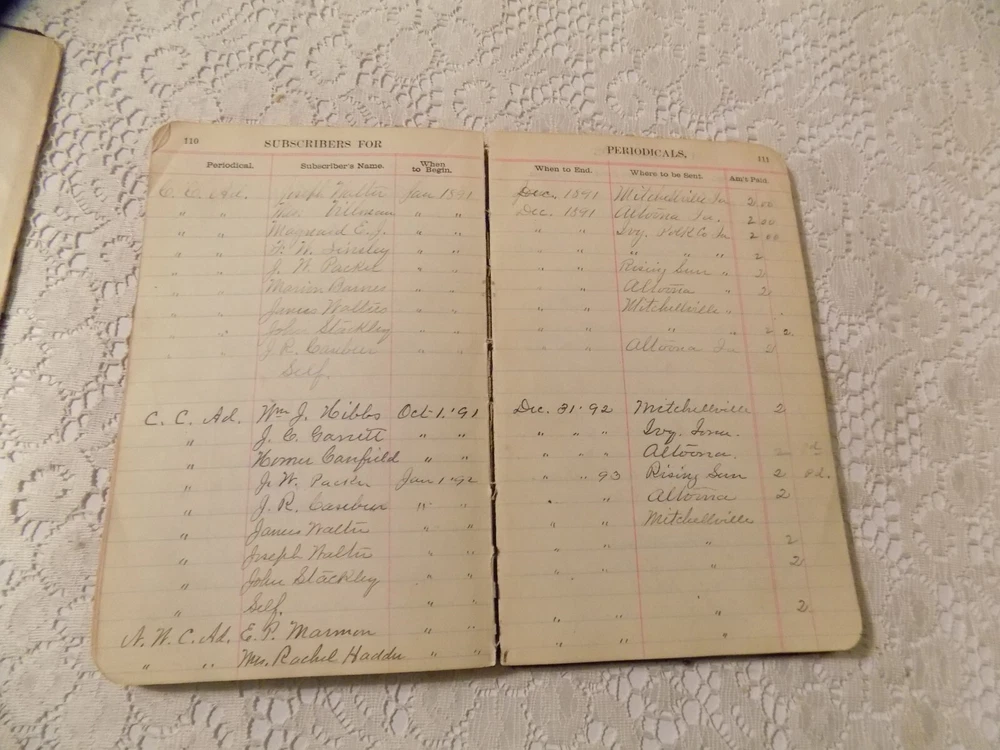 110 SUBSCRIBERS FOR PERIODICALS, 111
Periodical. Subscriber's Name. When to Begin. When to End. Where to be Sent. Am't Paid.
C. C. Ad. Joseph Walter Jan 1891 Dec. 1891 Mitchellville Ia 2.00
" " " " Dec. 1891 Altoona Ia. 2 00
" " Maynard " " " " Ivy. Polk Co. Ia 2 00
" " " " " " " " " 2
" " J. W. Packer " " " " Rising Sun " 2
" " Marion Barnes " " " " Altoona " 2
" " James Walter " " " " Mitchellville "
" " John Stackley " " " " " " 2.
" " J. R. " " " " Altoona Ia 2
Self.
C. C. Ad. Wm J. Hibbs Oct. 1. '91 Dec. 31. 92 Mitchellville 2
" J. C. Garrett " " " " " Ivy. Iowa.
" Homer Canfield " " " " " Altoona.
" J. W. Packer Jan 1 '92 " " 93 Rising Sun 2 Pd.
" J. R. " " " " Altoona 2
" James Walter " " " " Mitchellville
" Joseph Walter " " " " " 2
" John Stackley " " " " " 2
" Self. " " " 2
N. W. C. Ad. E. P. Marmon " " " " "
" " Mrs. Rachel " " " "